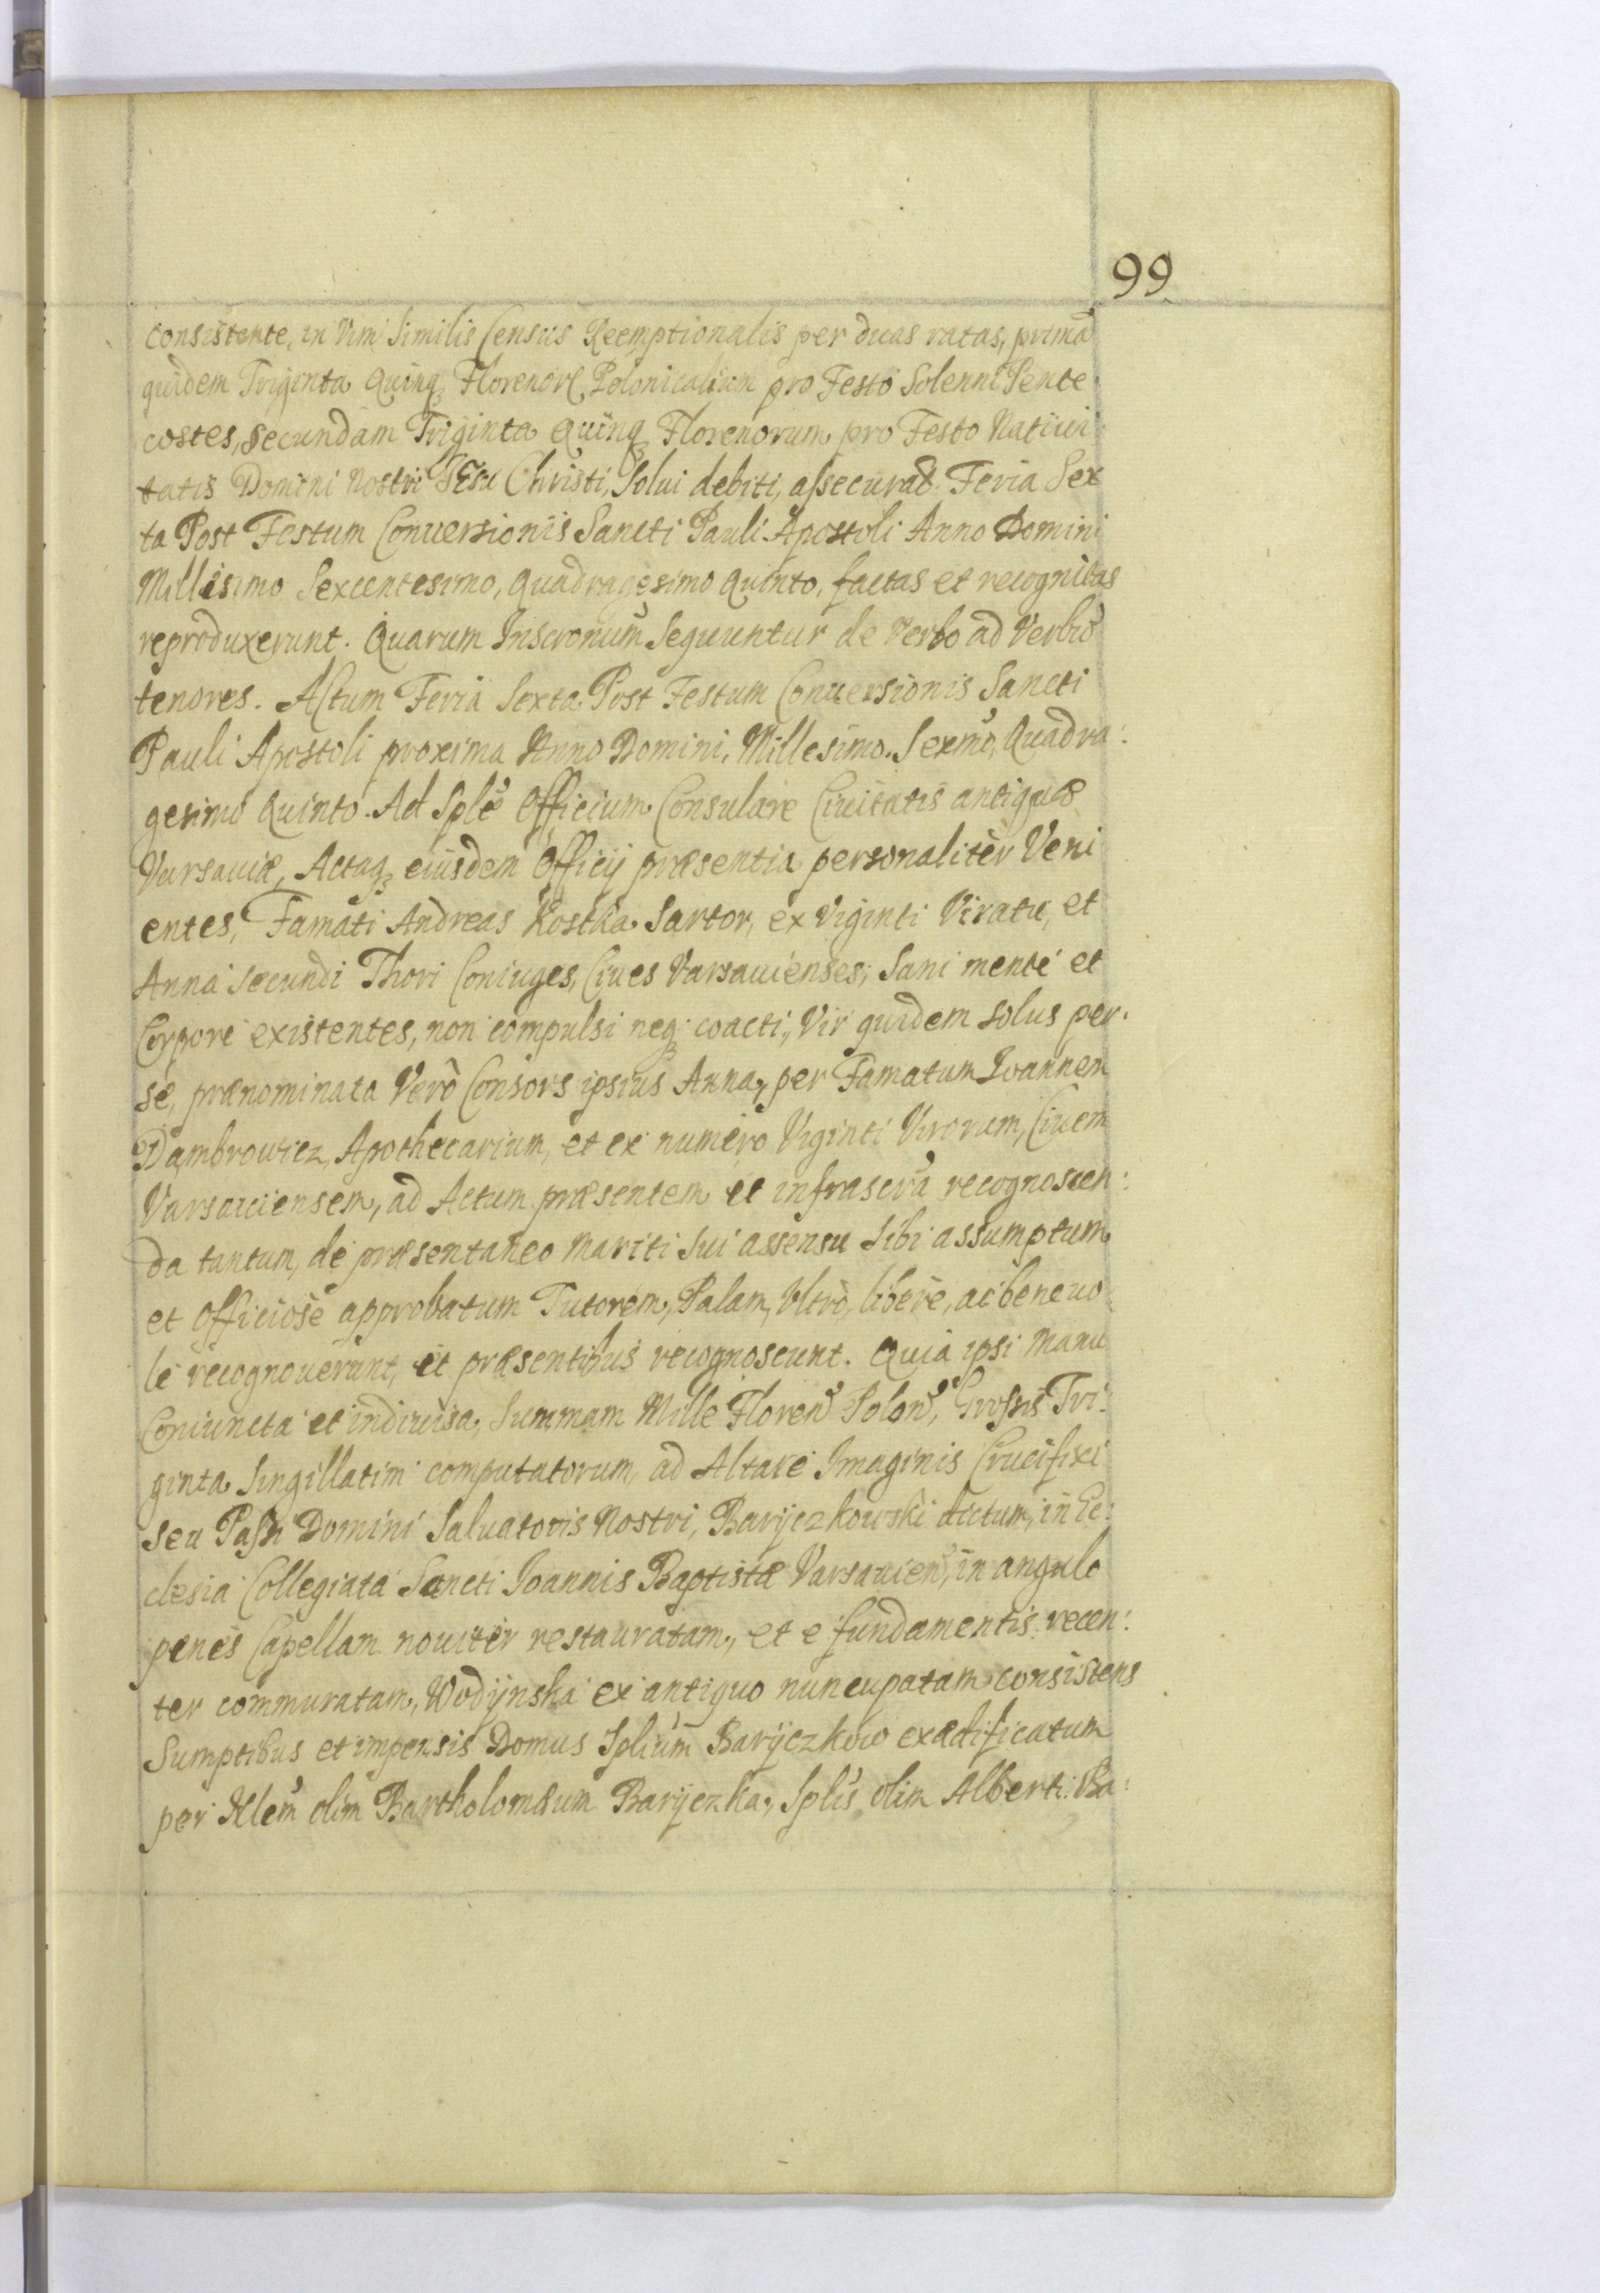 99
consistente, in Vim Similis Censûs Reemptionalis per duas ratas, primã
quidem Triginta Quinq₃ Florenorꝝ Polonicalium pro Festo Solenni Pente
costes, Secundam Triginta Quinq₃ Florenorum pro Festo Natiui
tatis Domini Nostri IEsu Christi, Solui debiti, assecurað. Feria Sex
ta Post Festum Conuersionis Sancti Pauli Apostoli Anno Domini
Millesimo Sexcentesimo, Quadragesimo Quinto, factas et recognitas
reproduxerunt. Quarum Inscronum̃ Sequuntur de Verbo ad Verbũ
tenores. Actum Feria Sexta Post Festum Conuersionis Sancti
Pauli Apostoli proxima Anno Domini, Millesimo. Sexmõ, Quadra:
gesimo Quinto. Ad Splẽ Officium Consulare Ciuitatis antiquæ
Varsauiæ, Actaq₃ eiusdem Officij præsentia personalitèr Veni
entes, Famati Andreas Kostka Sartor, ex Viginti Viratu, et
Anna Secundi Thori Coniuges, Ciues Varsauienses, Sani mente et
Corpore existentes, non compulsi neq₃ coacti, Vir quidem solus per.
se, prænominata Verò Consors ipsius Anna, per Famatum Ioannen
Dambrouicz, Apothecarium, et ex numero Viginti Virorum, Ciuem
Varsauiensem, ad Actum præsentem et infrascrã recognoscen:
da tantum, de præsentaneo Mariti Sui assensu Sibi assumptum
et Officiose approbatum Tutorem, Palam, Vltrò, liberè, ac beneuo
le recognouerunt, et præsentibus recognoscunt. Quia ipsi Manu
Coniuncta et indiuisa, Summam Mille Floreñ Poloñ, Grossis Tri:
ginta Singillatim computatorum, ad Altare Imaginis Crucifixi
seu Pasñ Domini Saluatoris Nostri, Baryczkowski dictum, in Ec:
clesia Collegiata Sancti Ioannis Baptistæ Varsauieñ, in angulo
penes Capellam nouiter restauratam, et e fundamentis recen:
ter commuratam, Wodynska ex antiquo nuncupatam consistens
Sumptibus et impensis Domus Spliũm Baryczkow exædificatum
per Nlem̃ olim Bartholomæum Baryczka, Splis̃ olim Alberti Ba: